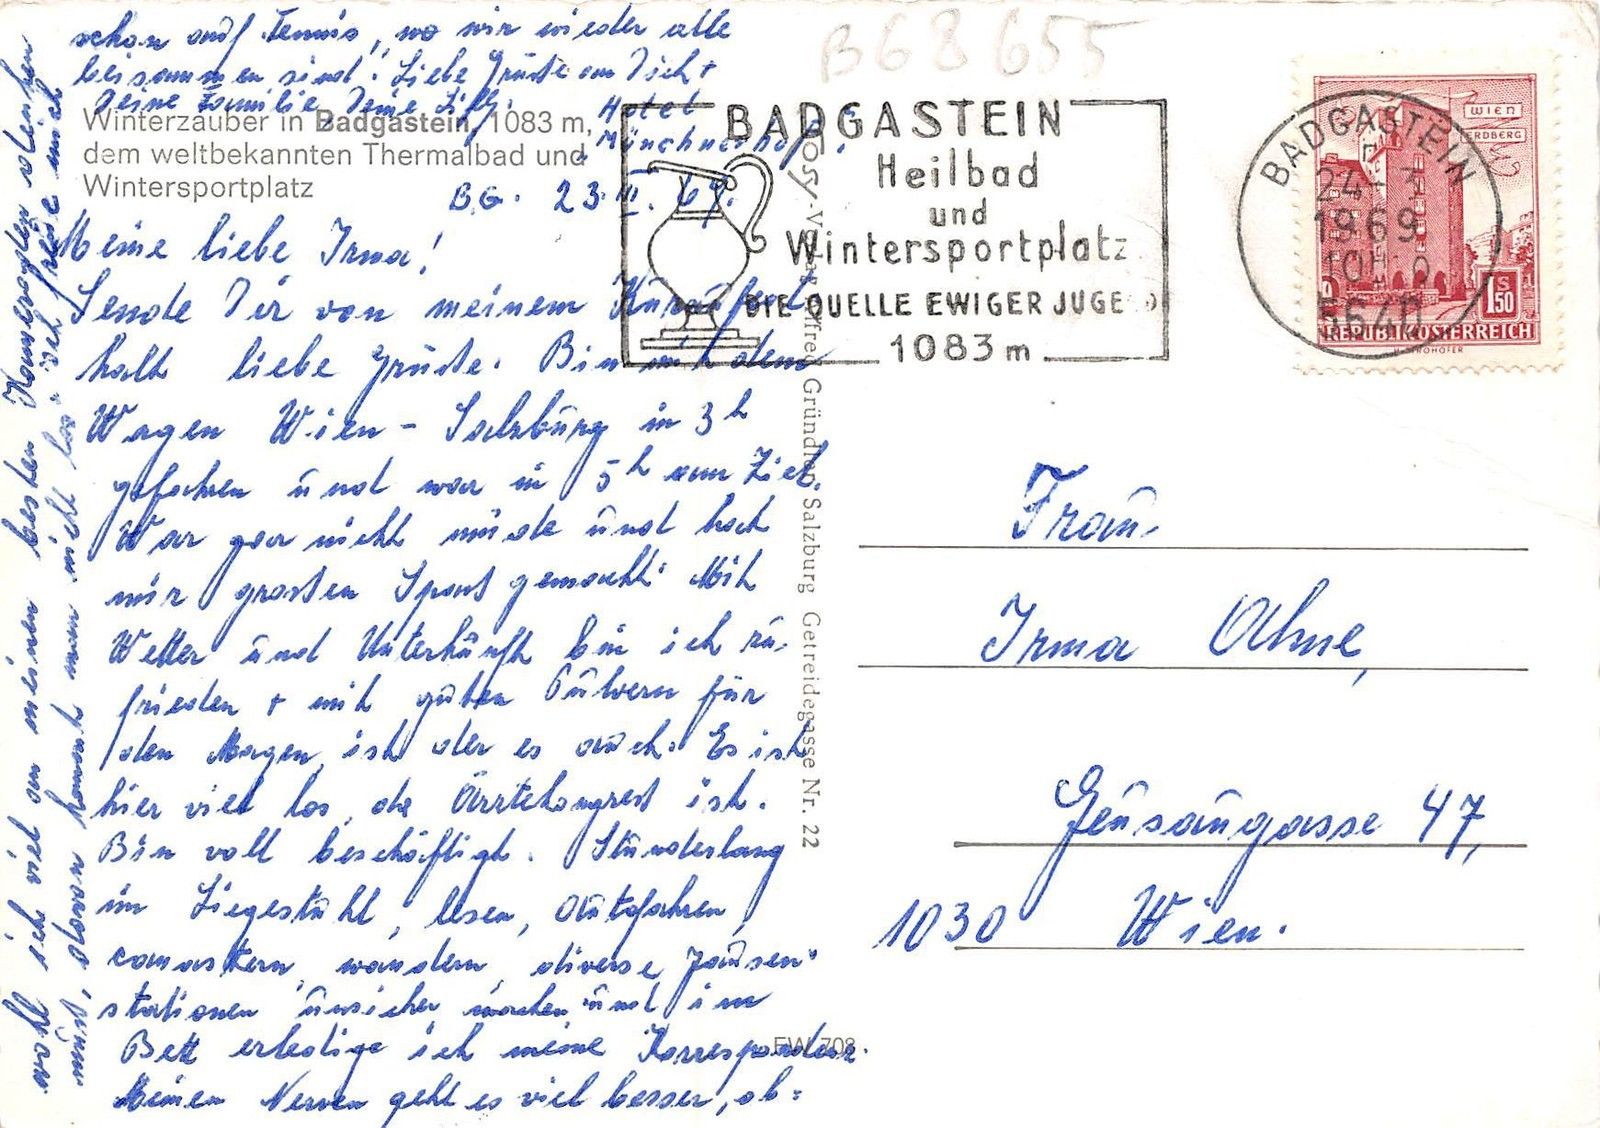 B68655
Winterzauber in Badgastein, 1083 m,
dem weltbekannten Thermalbad und
Wintersportplatz
Hotel
Münchnerhof,
B.G. 23.III.69.
Meine liebe Irma!
Sende Dir von meinem Kuraufent
halt liebe Grüsse. Bin mit dem
Wagen Wien - Salzburg in 3h
gefahren und war in 5h am Ziel.
War gar nicht müde und hat
mir grossen Spass gemacht. Mit
Wetter und Unterkunft bin ich zu-
frieden + mit guten Pulvern für
den Magen, ist der es auch. Es ist
hier viel los, da Ärztekongress ist.
Bin voll beschäftigt. Stundenlang
im Liegestuhl, lesen, Autofahren,
canastern, wandern, diverse Jausen-
stationen unsicher machen und im
Bett erledige ich meine Korrespondenz.
Meinen Nerven geht es viel besser, ob=
wohl ich viel an meinen besten Kameraden denken
muss, davon kommt man nicht los. Ich freue mich
schon auf Tennis, wo wir wieder alle
beisammen sind. Liebe Grüsse an Dich +
Deine Familie, Deine Lilly.
Cosy-Verlag Alfred Gründler, Salzburg Getreidegasse Nr. 22
EW 708
BADGASTEIN
Heilbad
und
Wintersportplatz
DIE QUELLE EWIGER JUGEND
1083 m
BADGASTEIN
24.-3.
1969
5640
WIEN
ERDBERG
S
1.50
REPUBLIK ÖSTERREICH
Frau
Irma Ahne,
Geusaugasse 47,
1030 Wien.